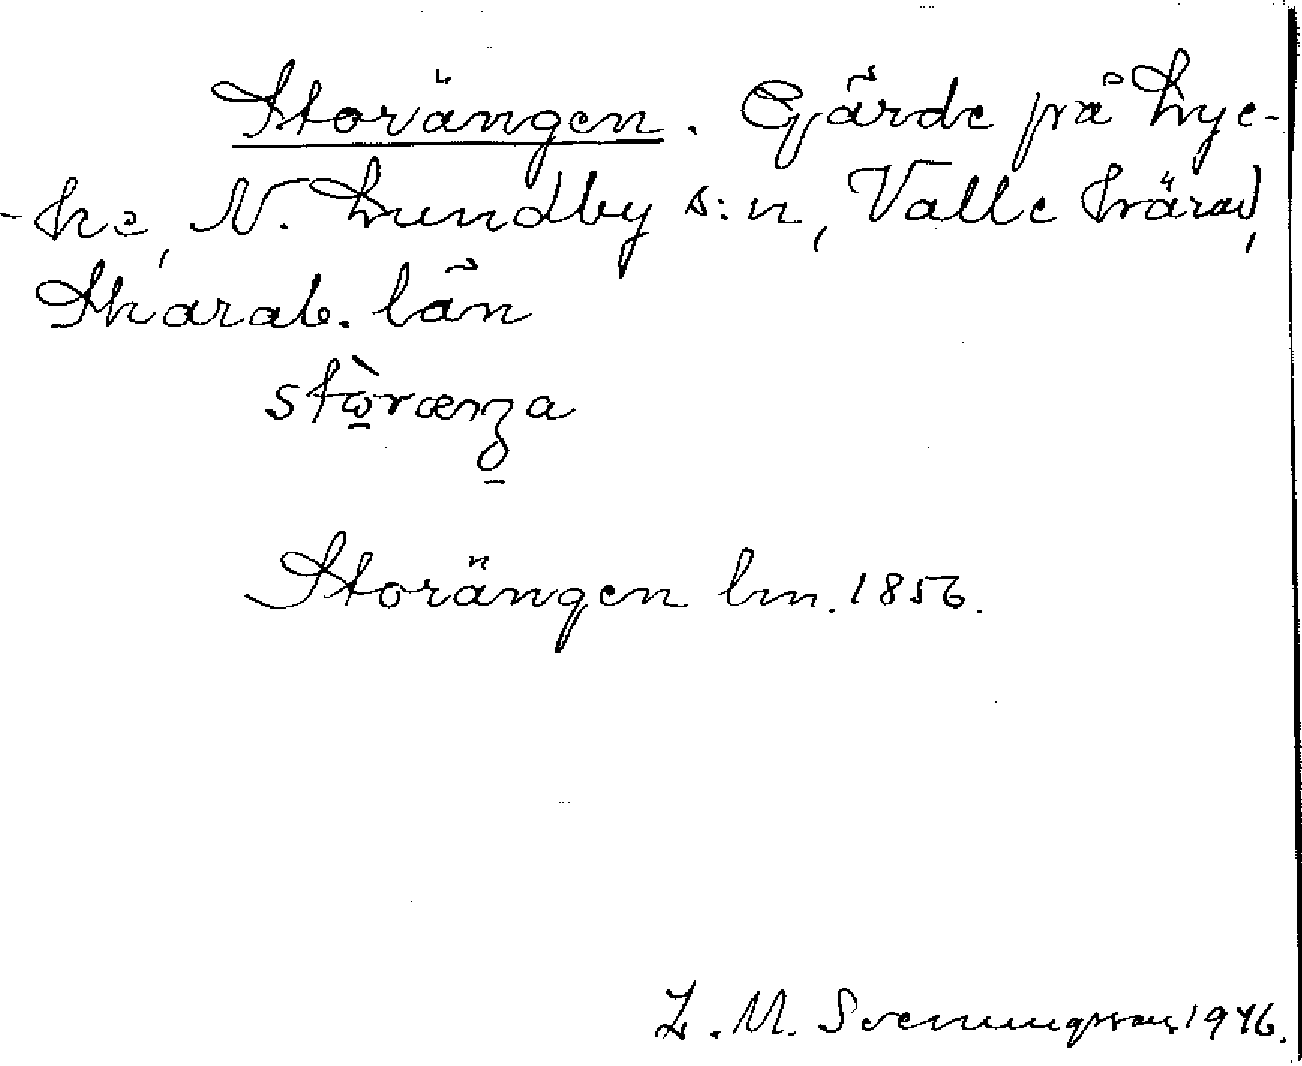 Storängen. Gärde på Lyc-
-ke, N. Lundby s:n, Valle härad,
Skarab. län
stòrænga
Storängen lm. 1856.
L. M. Svenungsson 1946.